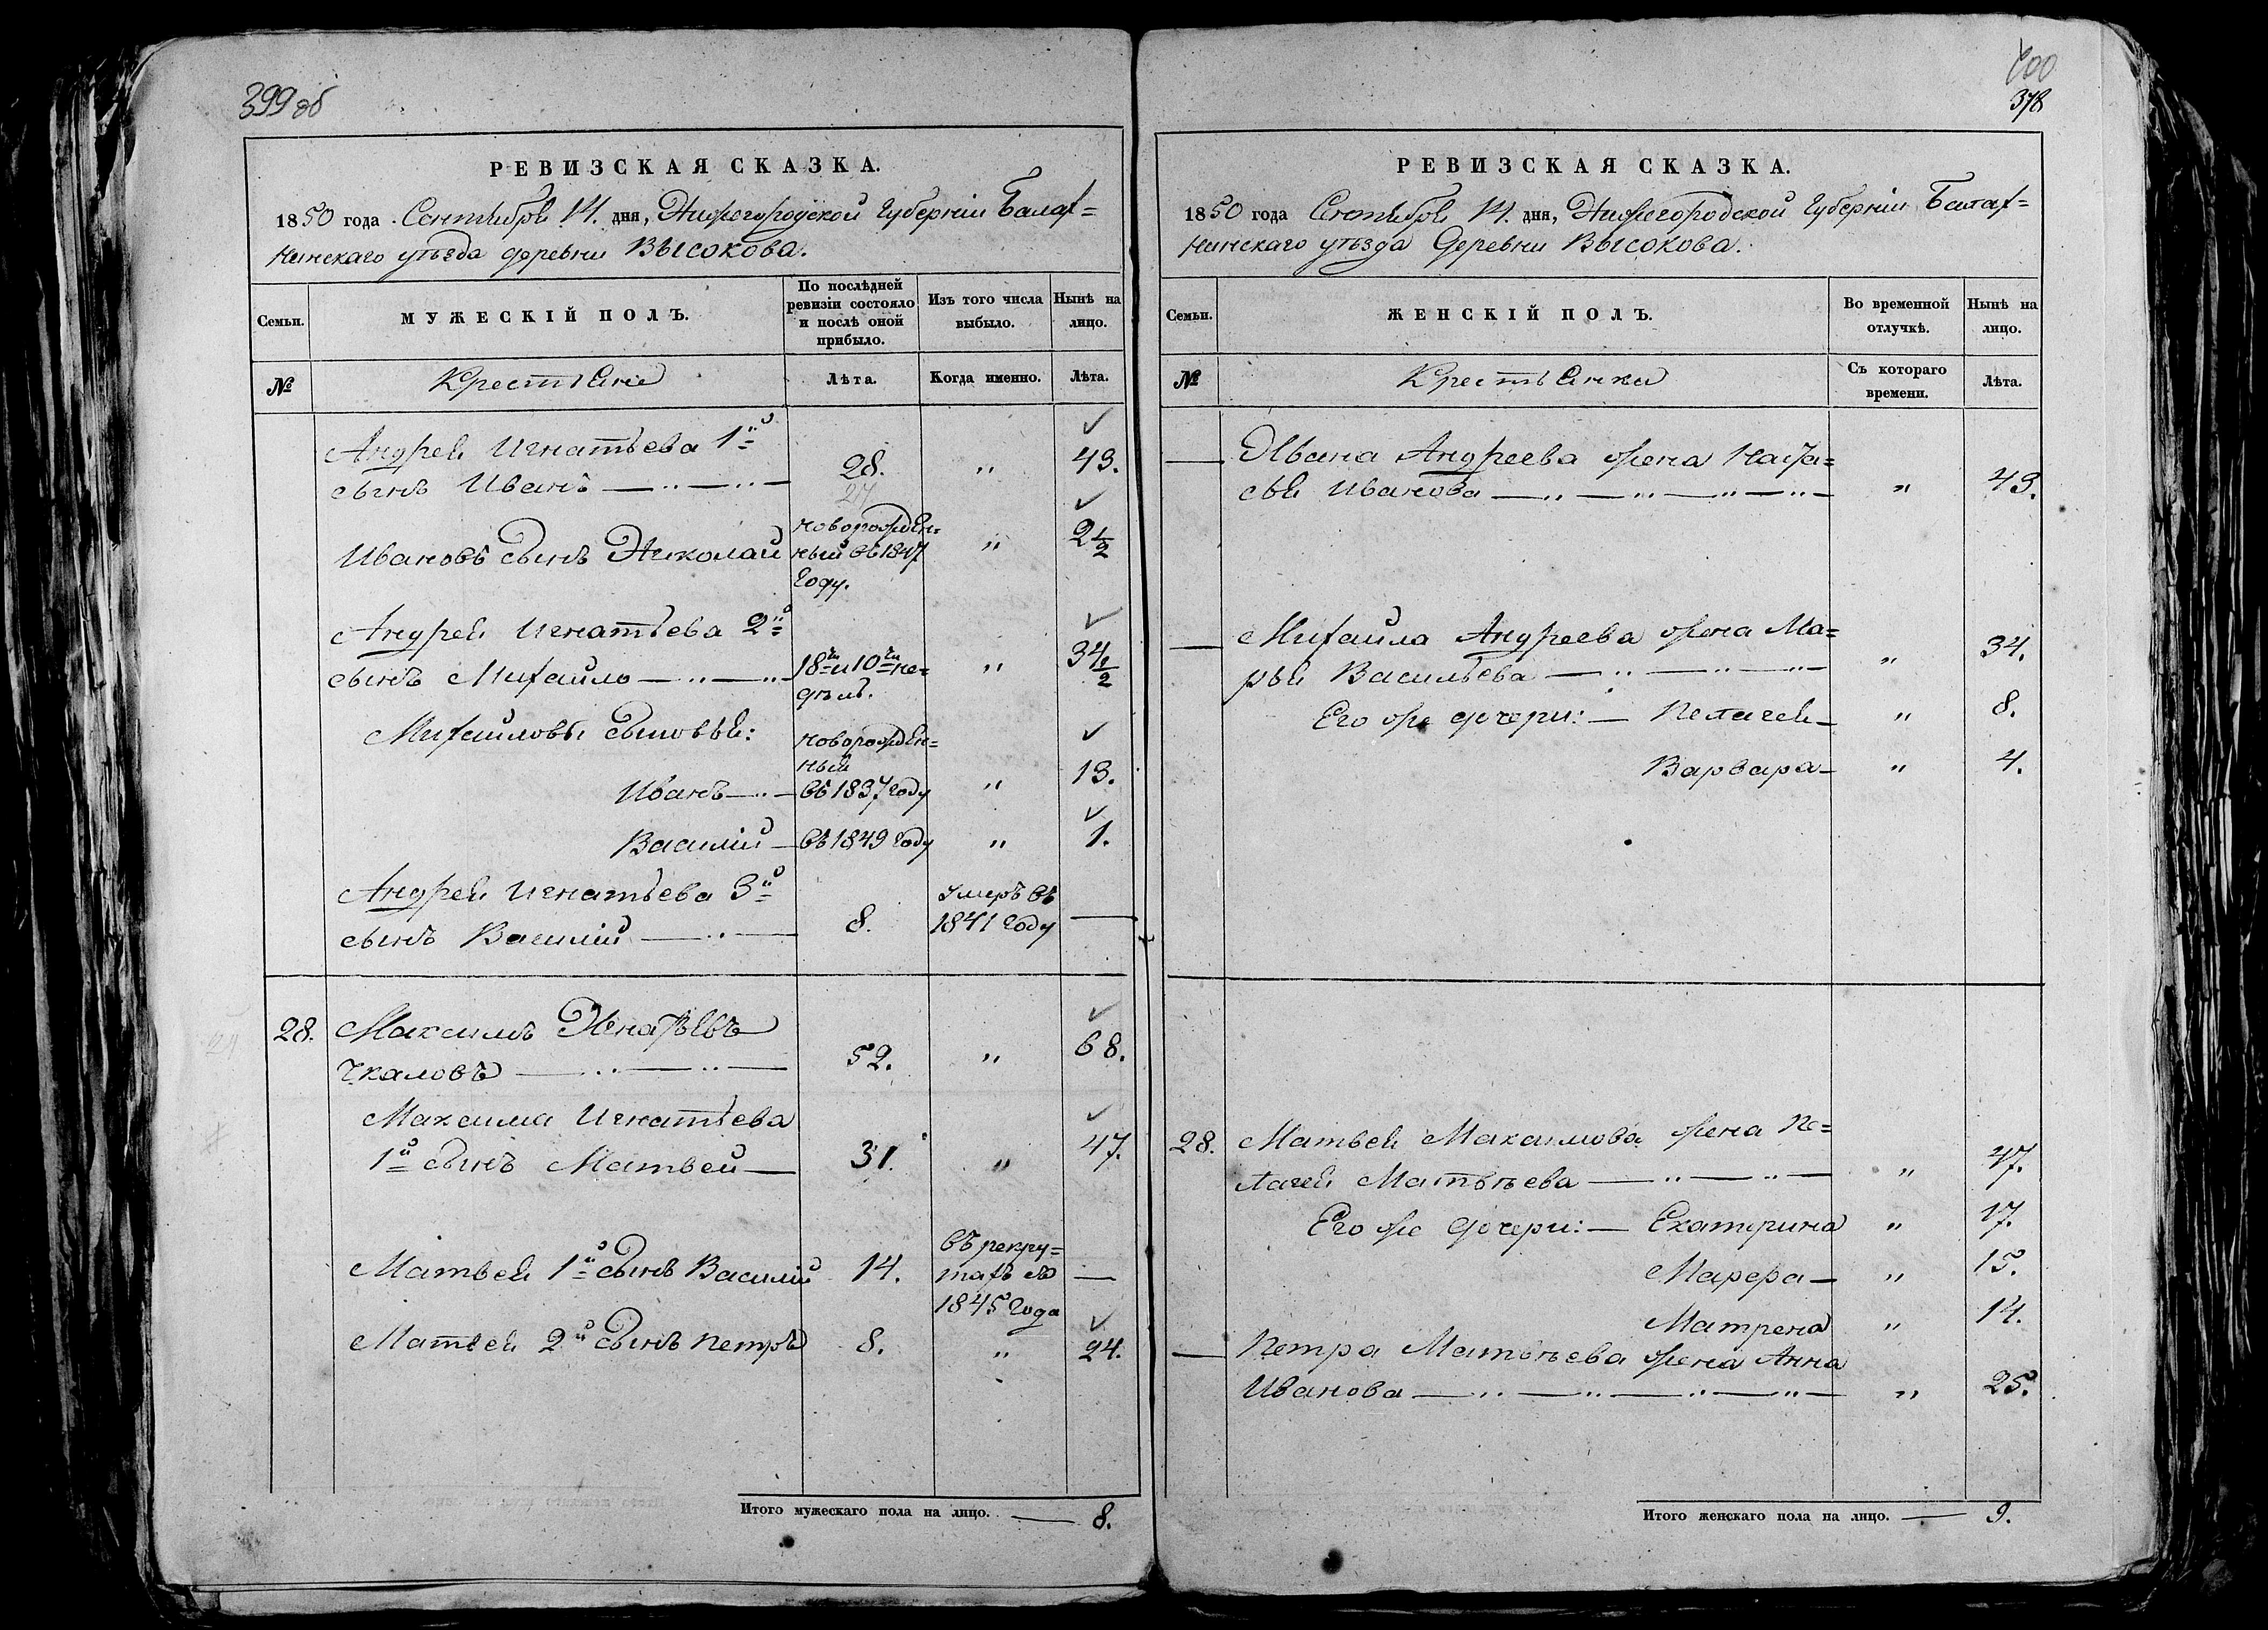 399 об
РЕВИЗСКАЯ СКАЗКА.
1850 года Сентября 14. дня, Нижегородской Губерніи Балах=
нинскаго уѣзда деревни Высокова.
Семьи.
МУЖЕСКІЙ ПОЛЪ.
По послѣдней
ревизіи состояло
и послѣ оной
прибыло.
Изъ того числа
выбыло.
Нынѣ на
лицо.
№
Крестьяне
Лѣта.
Когда именно.
Лѣта.
Андрея Игнатьева 1й
28.
"
43.
сынъ Иванъ
27
Ивановъ сынъ Николай
новорожден=
ный въ 1847
году.
"
2 1/2
Андрея Игнатьева 2й
сынъ Михайло
18ть и 10ть не=
дѣль.
"
34 1/2
Михайловы сыновья:
новорожден=
ный
Иванъ
въ 1837 году
"
13.
Василій
въ 1849 году
"
1.
Андрея Игнатьева 3й
сынъ Василій
8.
умеръ въ
1841 году
—
28.
Максимъ Игнатьевъ
Чкаловъ
52.
"
68.
Максима Игнатьева
1й сынъ Матвей
31.
"
47.
Матвея 1й сынъ Василій
14.
въ рекру=
тахъ съ
1845 года
—
Матвея 2й сынъ Петръ
8.
"
24.
Итого мужескаго пола на лицо.
8.
400
378
РЕВИЗСКАЯ СКАЗКА.
1850 года Сентября 14. дня, Нижегородской Губерніи Балах=
нинскаго уѣзда деревни Высокова.
Семьи.
ЖЕНСКІЙ ПОЛЪ.
Во временной
отлучкѣ.
Нынѣ на
лицо.
№
Крестьянки
Съ котораго
времени.
Лѣта.
Ивана Андреева жена Наста=
сья Иванова
"
43.
Михайла Андреева жена Ма=
рья Васильева
"
34.
Его же дочери: — Пелагея
"
8.
Варвара
"
4.
28.
Матвея Максимова жена Пе=
лагея Матвѣева
"
47.
Его же дочери: — Екатерина
"
17.
Марфа
"
15.
Матрена
"
14.
Петра Матвѣева жена Анна
Иванова
"
25.
Итого женскаго пола на лицо.
9.